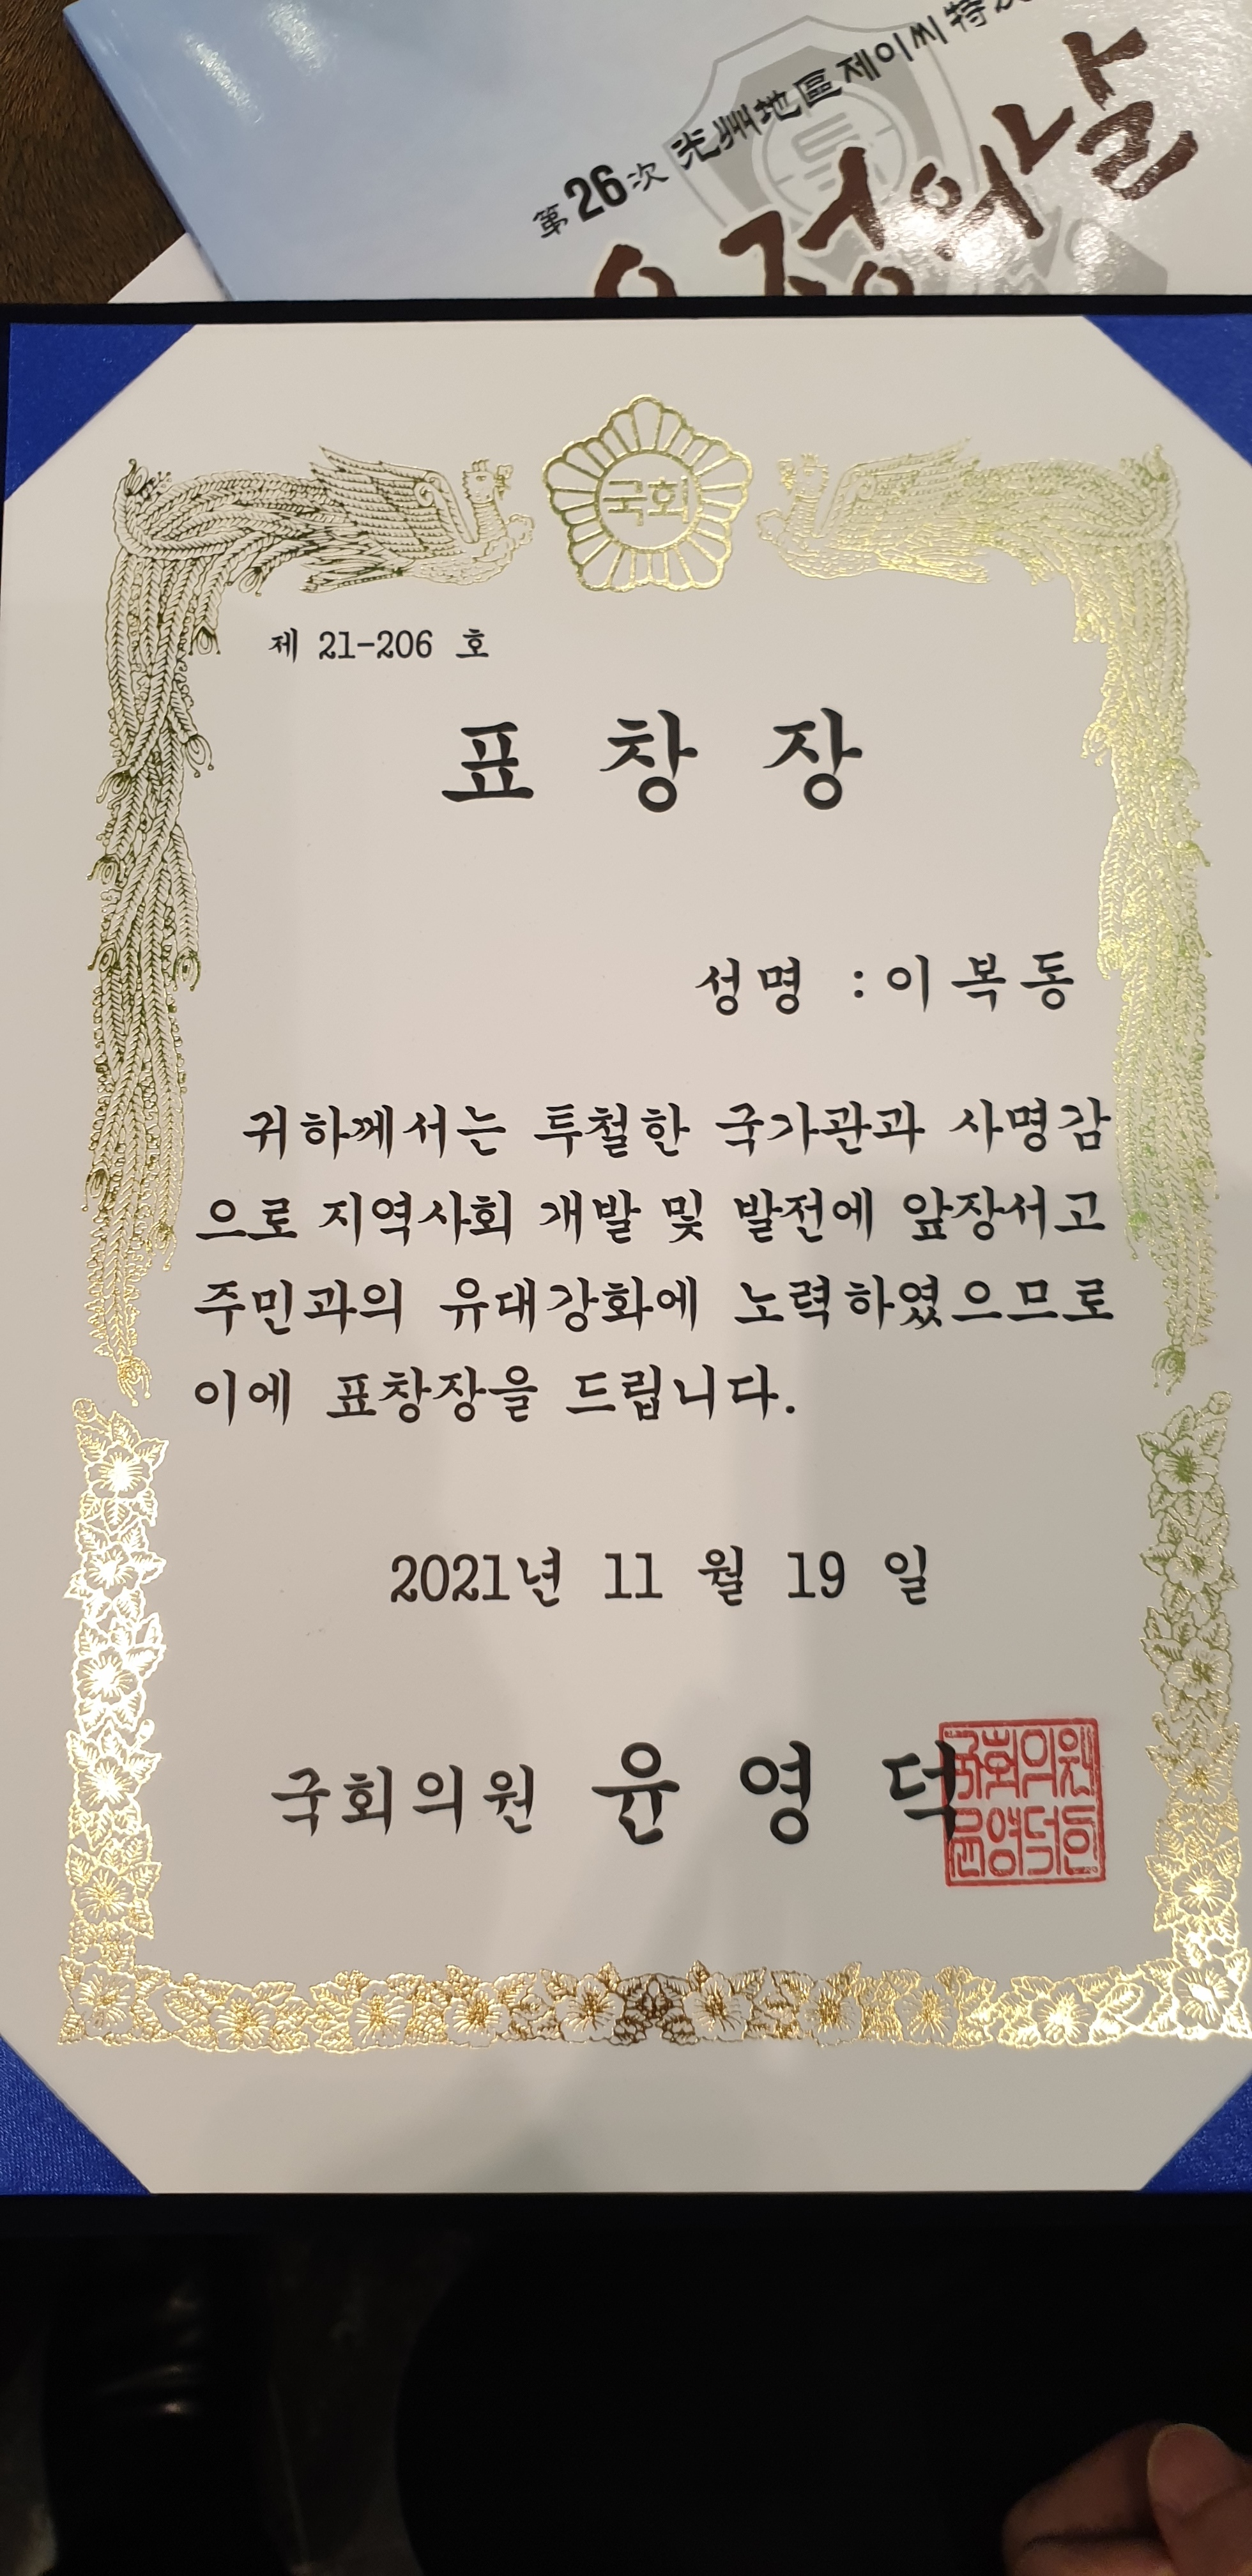 第26次 光州地區 제이씨 特
우정의 날
국회
제 21-206 호
표 창 장
성명 : 이 복 동
귀하께서는 투철한 국가관과 사명감
으로 지역사회 개발 및 발전에 앞장서고
주민과의 유대강화에 노력하였으므로
이에 표창장을 드립니다.
2021년 11 월 19 일
국회의원 윤 영 덕
국회의원
윤영덕인